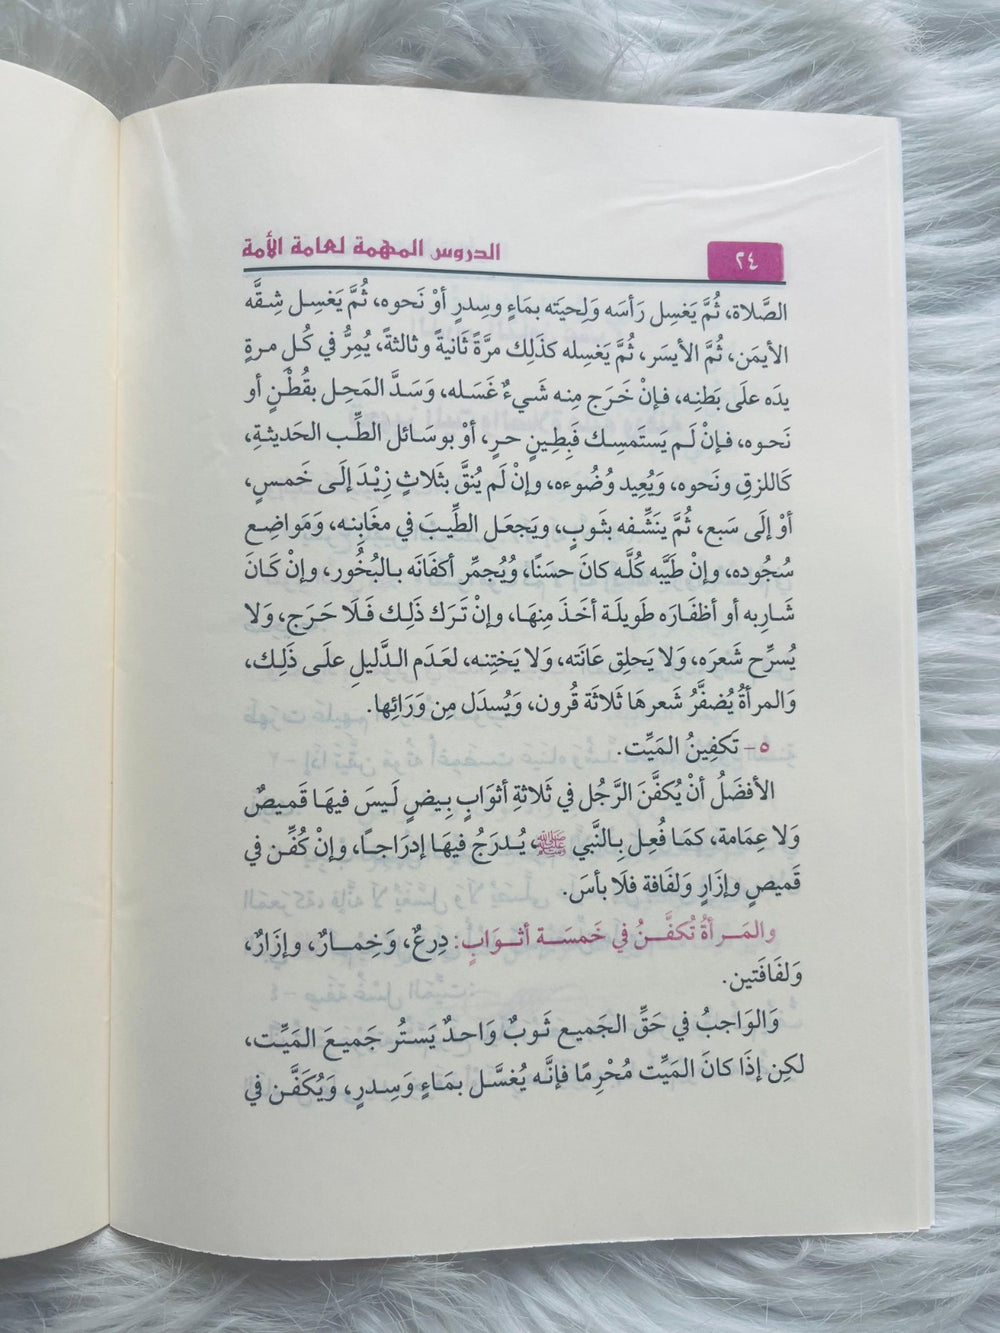 الدروس المهمة لعامة الأمة
٢٤
الصَّلاة، ثُمَّ يَغسِل رَأسَه وَلِحيَته بمَاءٍ وسِدرٍ أوْ نَحوه، ثُمَّ يَغسِل شِقَّه
الأيمَن، ثُمَّ الأيسَر، ثُمَّ يَغسِله كذَلِك مرَّةً ثَانيةً وثالثةً، يُمِرُّ في كُلِ مرةٍ
يدَه علَى بَطنِه، فإنْ خَرَج مِنه شَيءٌ غَسَله، وَسَدَّ المَحِل بقُطْنٍ أو
نَحوه، فإنْ لَم يَستَمسِك فَبِطِينٍ حرٍ، أوْ بوسَائل الطِّب الحَديثةِ،
كَاللزقِ ونَحوه، وَيُعِيد وضُوءه، وإنْ لَم يُنقَّ بثَلاثٍ زِيْدَ إلَى خَمسٍ،
أوْ إلَى سَبع، ثُمَّ ينَشِّفه بثَوبٍ، ويَجعَل الطِّيبَ في مغَابِنه، وَمَواضِع
سُجُوده، وإنْ طَيَّبه كُلَّه كانَ حسَنًا، وُيُجمِّر أكفَانَه بالبُخُور، وإنْ كَانَ
شَارِبه أو أظفَارَه طَويلَة أخَذَ مِنهَا، وإنْ تَرَك ذَلِك فَلَا حَرَج، وَلا
يُسرِّح شَعرَه، وَلا يَحلِق عَانَته، وَلا يَختِنه، لعَدَم الدَّليلِ علَى ذَلِك،
وَالمرأةُ يُضفَّرُ شَعرهَا ثَلاثَة قُرون، وَيُسدَل مِن وَرَائِها.
٥- تَكفِينُ المَيِّت.
الأفضَلُ أنْ يُكفَّنَ الرَّجُل في ثَلاثةِ أثوَابٍ بِيضٍ لَيسَ فيهَا قَميصٌ
وَلا عِمَامة، كمَا فُعِل بِالنَّبي ﷺ، يُدرَجُ فيهَا إدرَاجاً، وإنْ كُفِّن في
قَميصٍ وإزَارٍ وَلفَافة فلَا بأسَ.
والمَرأةُ تُكفَّنُ في خَمسَة أثوَابٍ: دِرعٌ، وَخِمارٌ، وإزَارٌ،
وَلفَافَتين.
وَالوَاجبُ في حَقِّ الجَميع ثَوبٌ وَاحدٌ يَستُر جَميعَ المَيِّت،
لكِن إذَا كانَ المَيِّت مُحْرِمًا فإنَّه يُغسَّل بمَاءٍ وَسِدرٍ، وَيُكَفَّن في